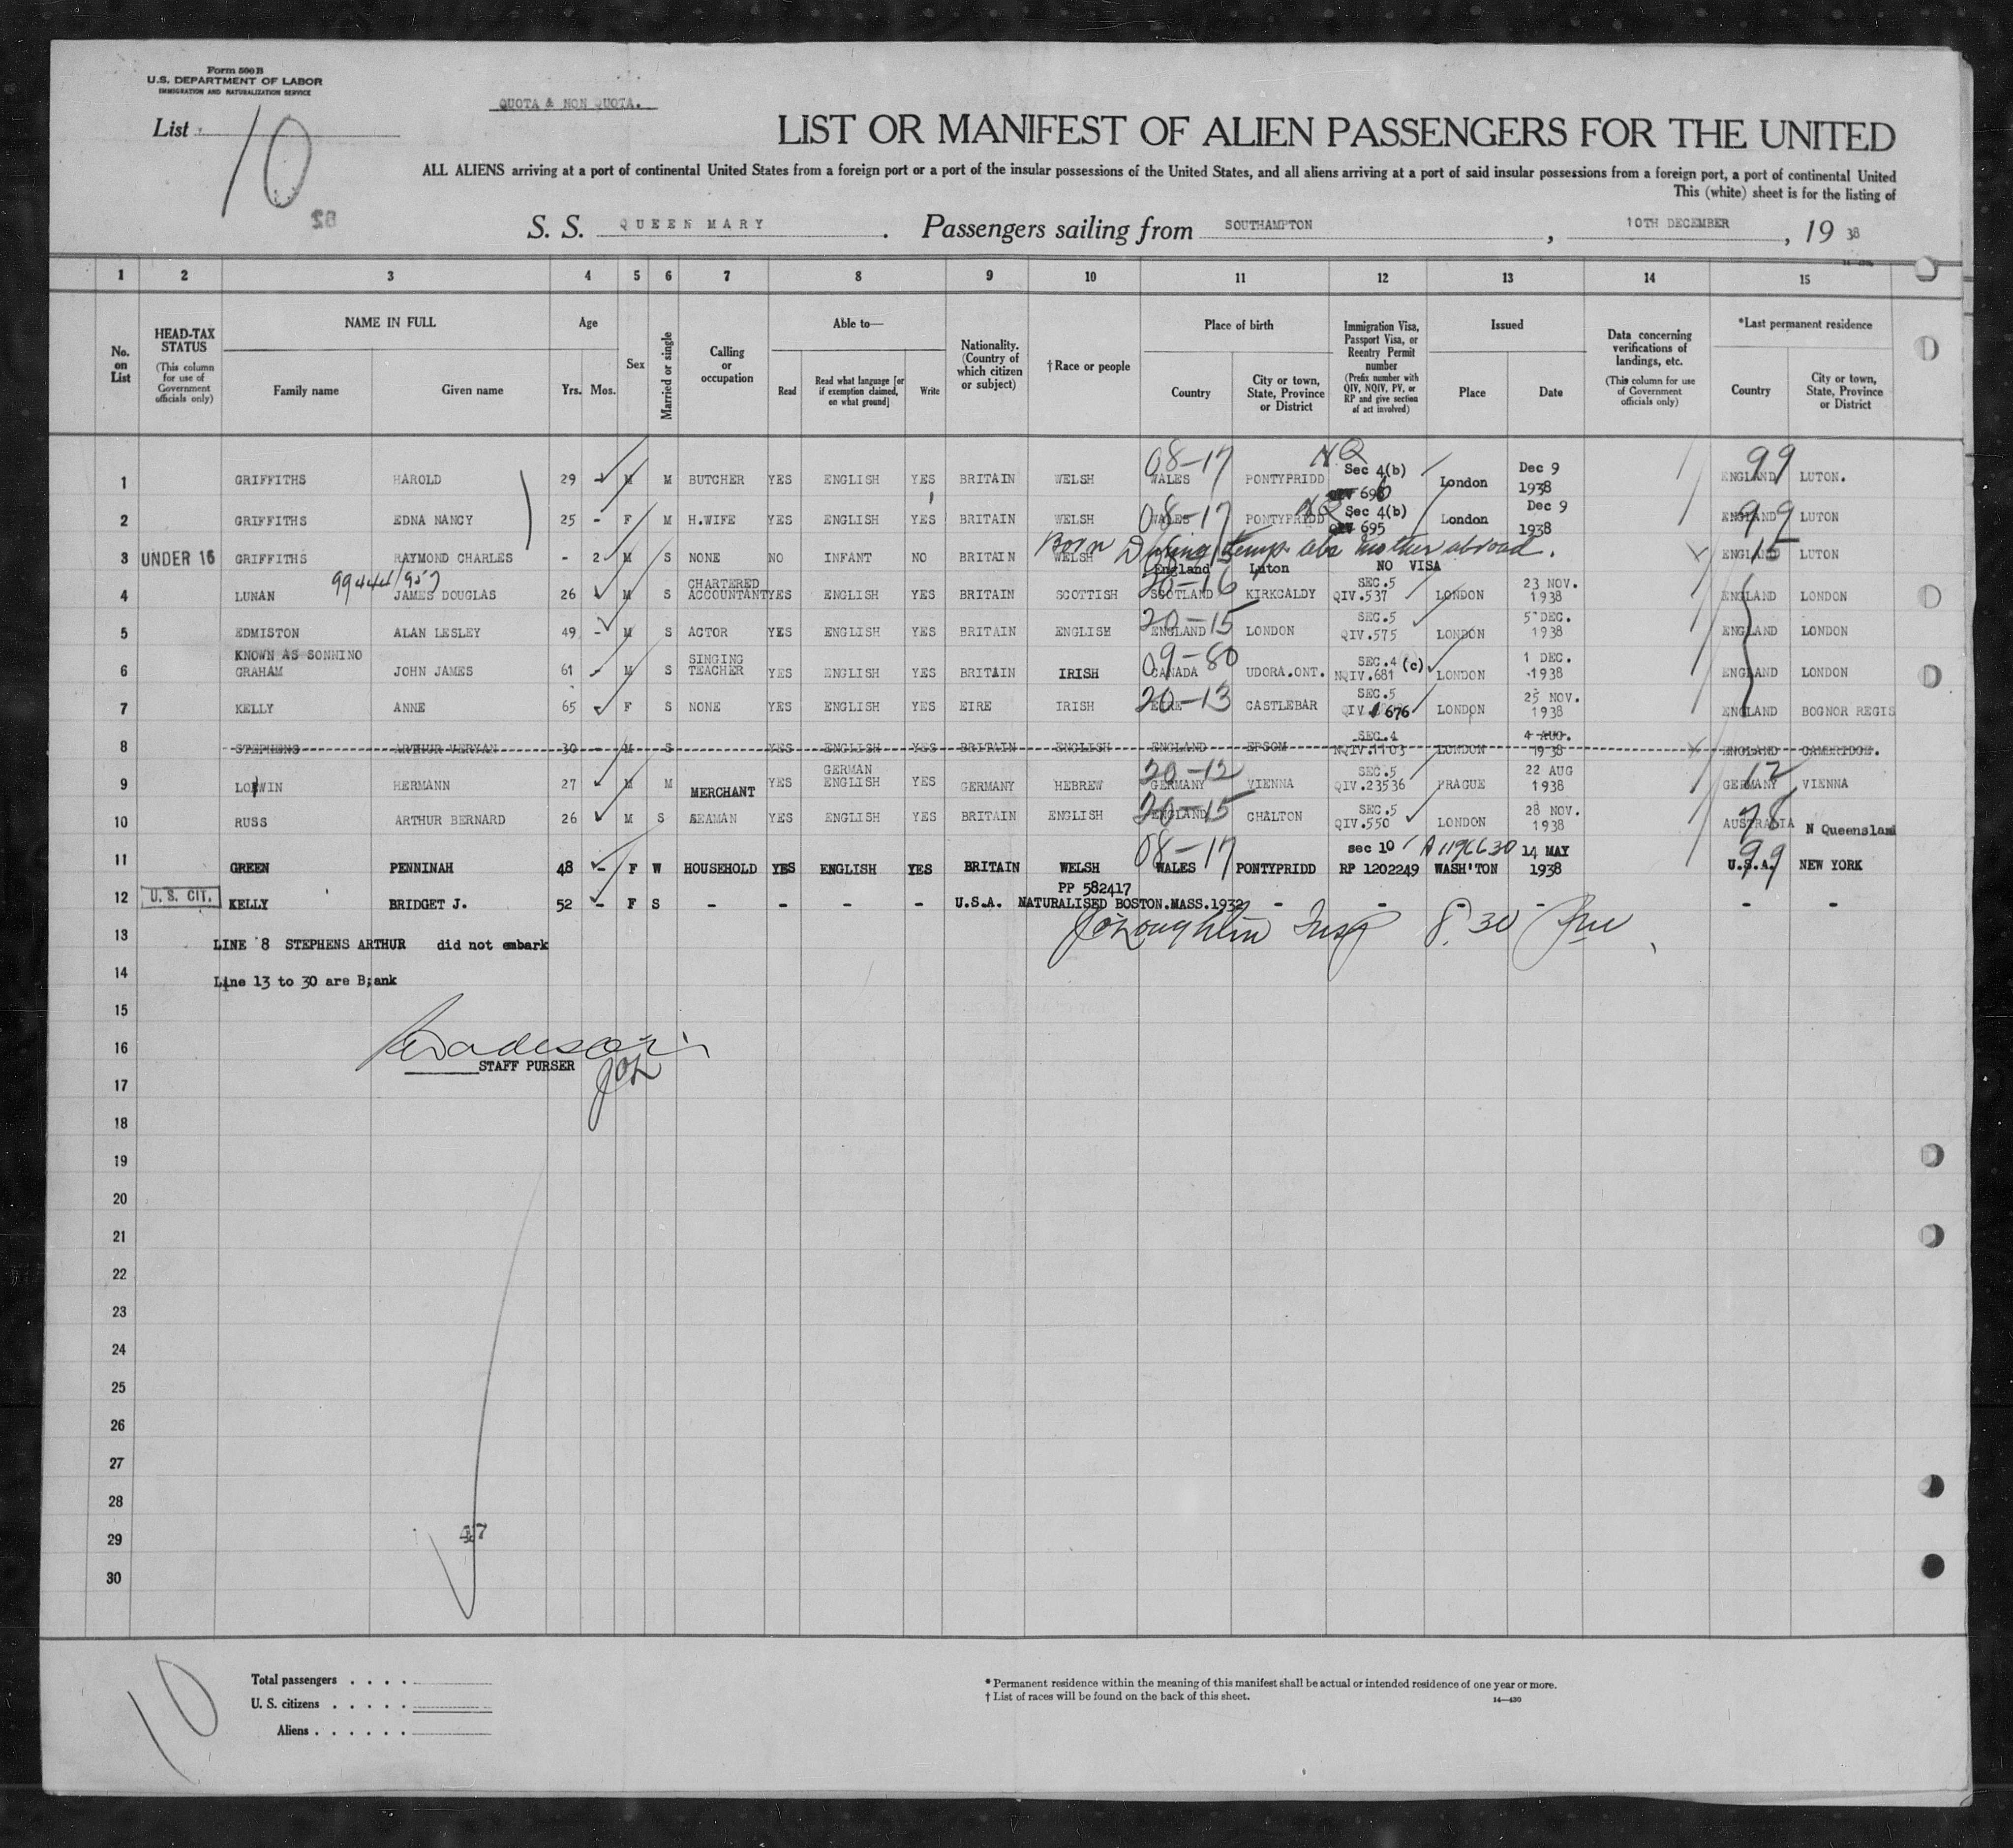 Form 500 B
U.S. DEPARTMENT OF LABOR
IMMIGRATION AND NATURALIZATION SERVICE
QUOTA & NON QUOTA.
List 10
LIST OR MANIFEST OF ALIEN PASSENGERS FOR THE UNITED
ALL ALIENS arriving at a port of continental United States from a foreign port or a port of the insular possessions of the United States, and all aliens arriving at a port of said insular possessions from a foreign port, a port of continental United
This (white) sheet is for the listing of
S. S. QUEEN MARY. Passengers sailing from SOUTHAMPTON, 10TH DECEMBER, 1938
1 2 3 4 5 6 7 8 9 10 11 12 13 14 15
No. on List
HEAD-TAX STATUS (This column for use of Government officials only)
NAME IN FULL
Family name Given name
Age
Yrs. Mos.
Sex
Married or single
Calling or occupation
Able to—
Read Read what language [or if exemption claimed, on what ground] Write
Nationality. (Country of which citizen or subject)
†Race or people
Place of birth
Country City or town, State, Province or District
Immigration Visa, Passport Visa, or Reentry Permit number (Prefix number with QIV, NQIV, PV, or RP and give section of act involved)
Issued
Place Date
Data concerning verifications of landings, etc. (This column for use of Government officials only)
*Last permanent residence
Country City or town, State, Province or District
08-17 NQ 99
1 GRIFFITHS HAROLD 29 - M M BUTCHER YES ENGLISH YES BRITAIN WELSH WALES PONTYPRIDD Sec 4(b) London Dec 9 1938 ENGLAND LUTON.
08-17 NQ 99
2 GRIFFITHS EDNA NANCY 25 - F M H.WIFE YES ENGLISH YES BRITAIN WELSH WALES PONTYPRIDD Sec 4(b) QIV 695 London Dec 9 1938 ENGLAND LUTON
Born During temp. abs mother abroad.
3 UNDER 16 GRIFFITHS RAYMOND CHARLES - 2 M S NONE NO INFANT NO BRITAIN WELSH England Luton NO VISA ENGLAND LUTON
20-16
4 LUNAN JAMES DOUGLAS 26 M S CHARTERED ACCOUNTANT YES ENGLISH YES BRITAIN SCOTTISH SCOTLAND KIRKCALDY SEC.5 QIV.537 LONDON 23 NOV. 1938 ENGLAND LONDON
20-15
5 EDMISTON ALAN LESLEY 49 - M S ACTOR YES ENGLISH YES BRITAIN ENGLISH ENGLAND LONDON SEC.5 QIV.575 LONDON 5 DEC. 1938 ENGLAND LONDON
KNOWN AS SONNINO
09-80
6 GRAHAM JOHN JAMES 61 - M S SINGING TEACHER YES ENGLISH YES BRITAIN IRISH CANADA UDORA.ONT. SEC.4 (c) NQIV.681 LONDON 1 DEC. 1938 ENGLAND LONDON
20-13
7 KELLY ANNE 65 - F S NONE YES ENGLISH YES EIRE IRISH EIRE CASTLEBAR SEC.5 QIV 676 LONDON 25 NOV. 1938 ENGLAND BOGNOR REGIS
8 STEPHENS ARTHUR VERYAN 30 - M S YES ENGLISH YES BRITAIN ENGLISH ENGLAND EPSOM SEC.4 NQIV.1103 LONDON 4 AUG. 1938 ENGLAND CAMBRIDGE.
20-12 12
9 HERMANN 27 M M MERCHANT YES GERMAN ENGLISH YES GERMANY HEBREW GERMANY VIENNA SEC.5 QIV.23536 PRAGUE 22 AUG 1938 GERMANY VIENNA
20-15 78
10 RUSS ARTHUR BERNARD 26 M S SEAMAN YES ENGLISH YES BRITAIN ENGLISH ENGLAND CHALTON SEC.5 QIV.550 LONDON 28 NOV. 1938 AUSTRALIA N Queensland
08-17 99
11 GREEN PENNINAH 48 - F W HOUSEHOLD YES ENGLISH YES BRITAIN WELSH WALES PONTYPRIDD sec 10 RP 1202249 WASH'TON 14 MAY 1938 U.S.A. NEW YORK
PP 582417
12 U.S. CIT. KELLY BRIDGET J. 52 - F S - - - - U.S.A. NATURALISED BOSTON.MASS.1932 - - - - - -
13 LINE 8 STEPHENS ARTHUR did not embark
8.30
14 Line 13 to 30 are B;ank
15
16
STAFF PURSER
17
18
19
20
21
22
23
24
25
26
27
28
47
29
30
10
Total passengers . . . .
U. S. citizens . . . . .
Aliens . . . . . .
* Permanent residence within the meaning of this manifest shall be actual or intended residence of one year or more.
† List of races will be found on the back of this sheet.
14—430